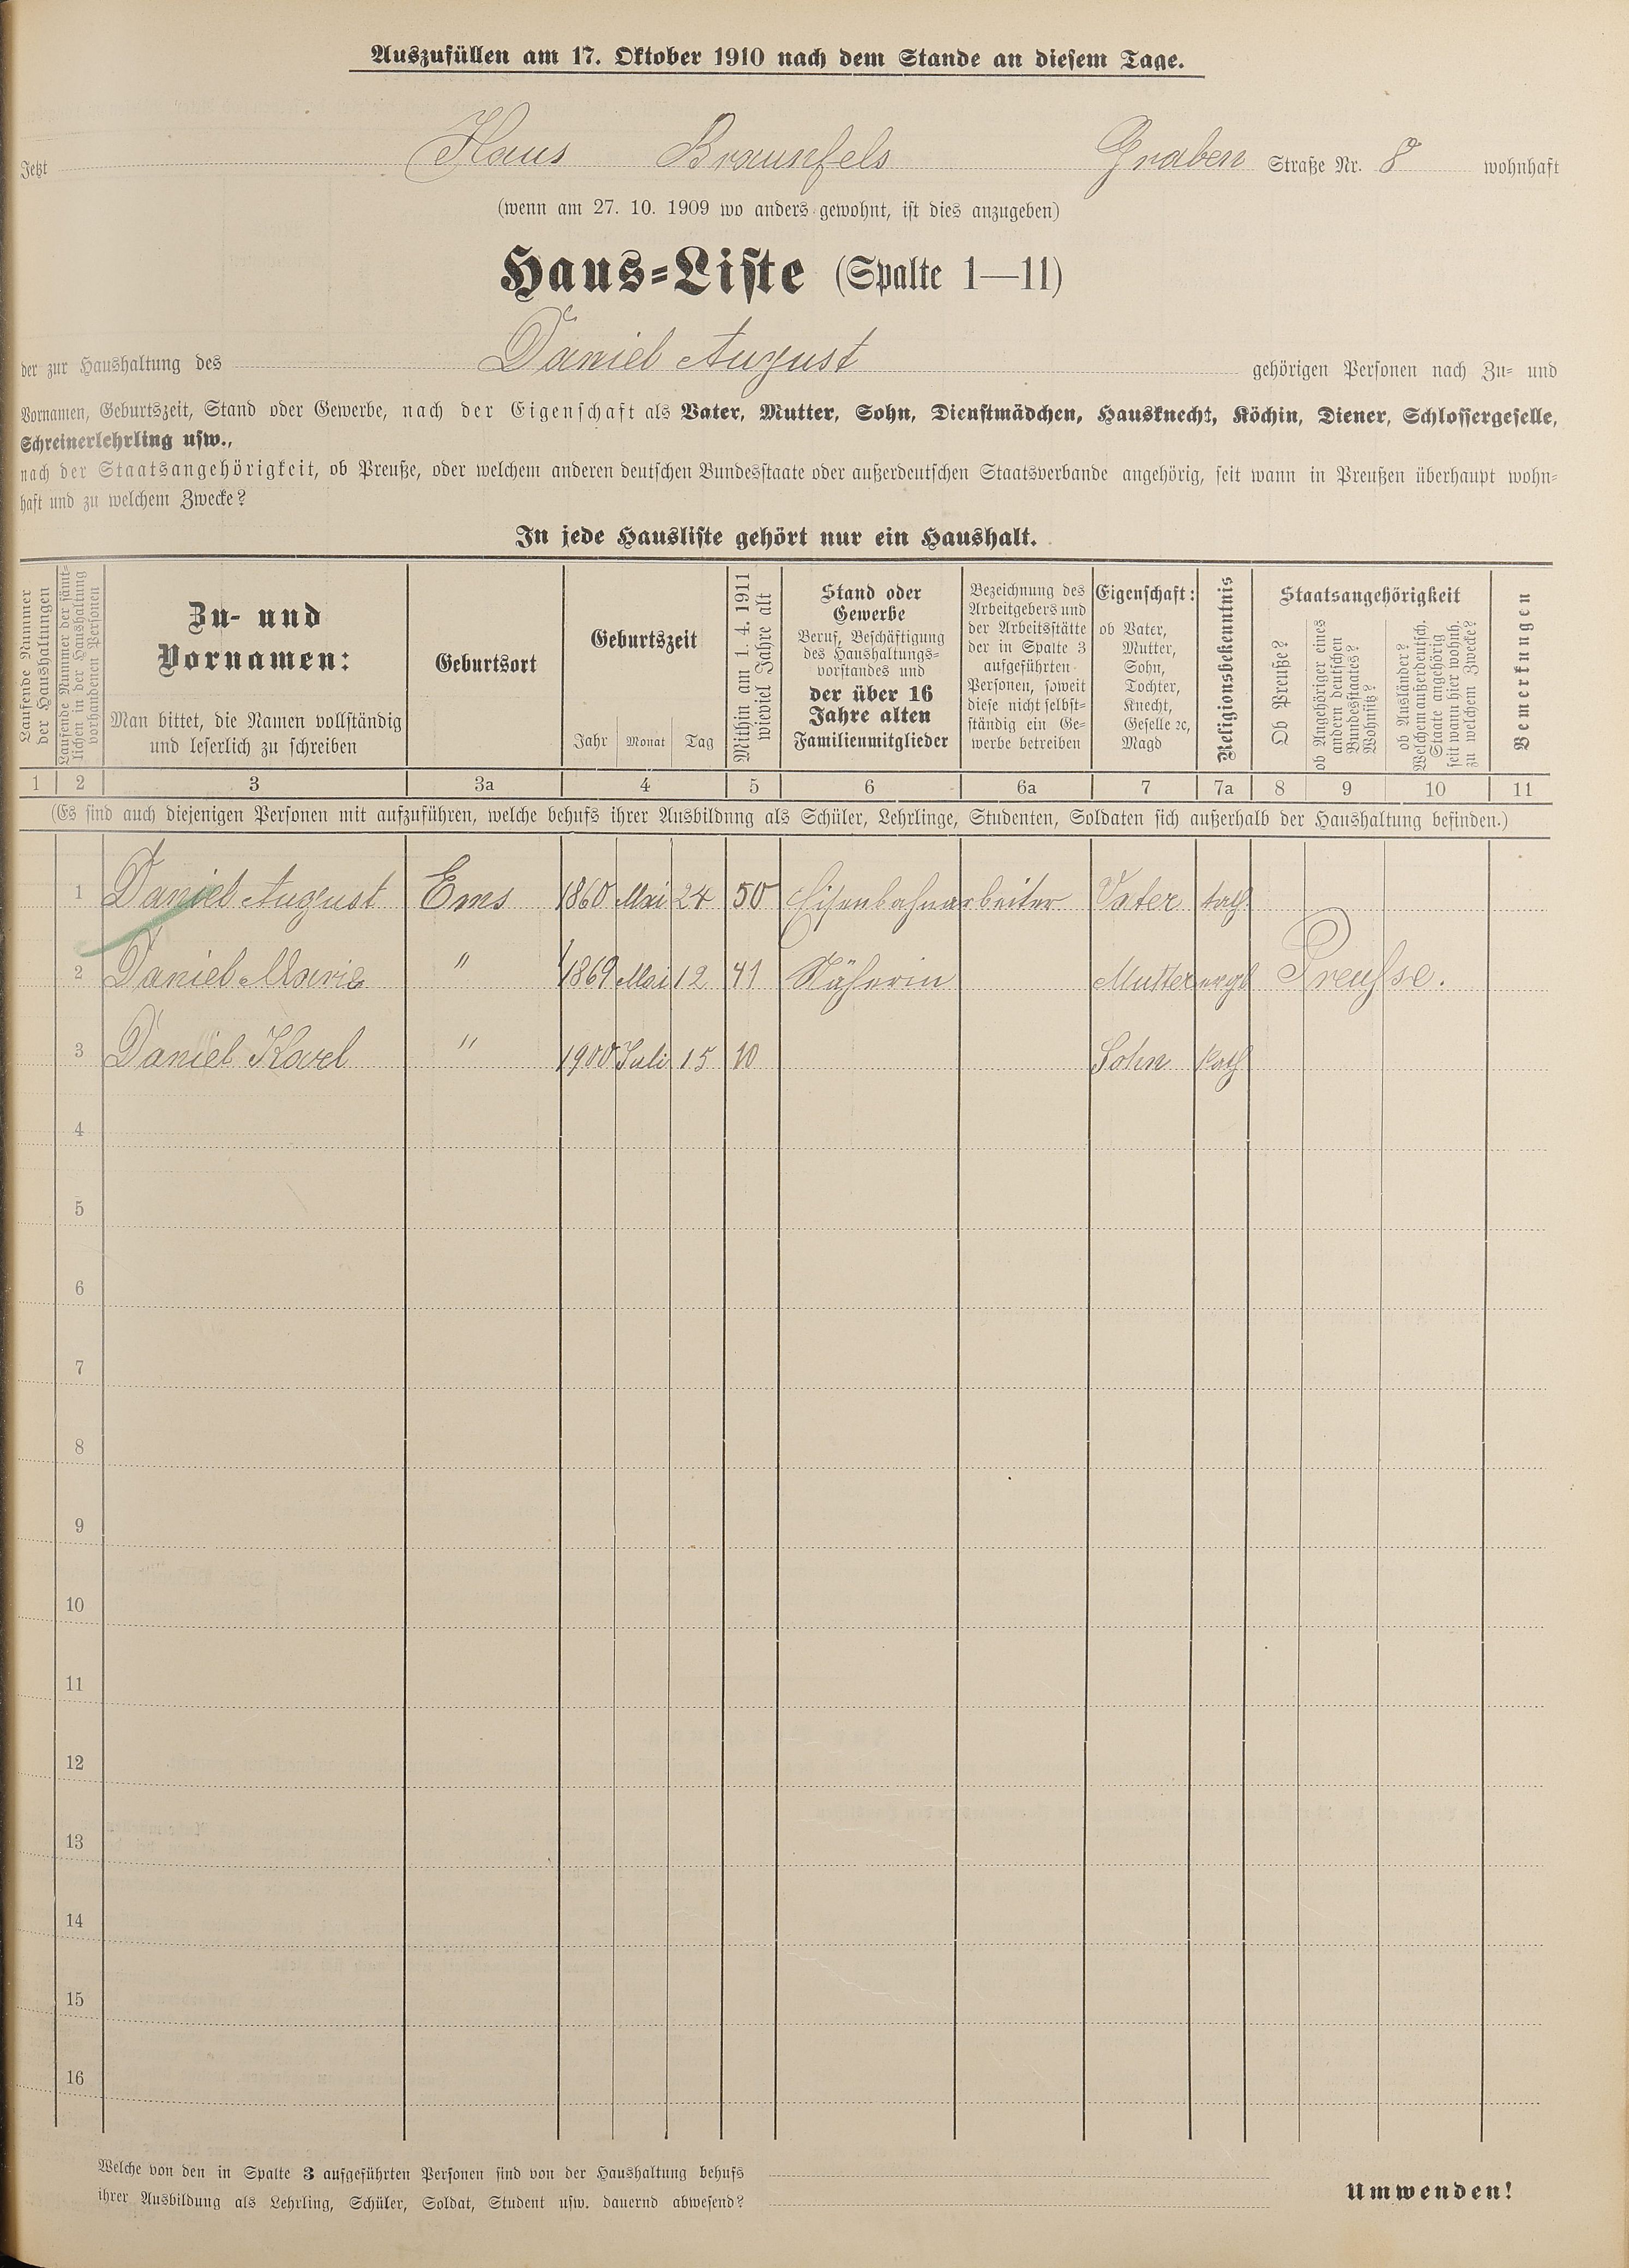 Auszufüllen am 17. Oktober 1910 nach dem Stande an diesem Tage.
Jetzt Haus Braunfels Graben Straße Nr. 8 wohnhaft
(wenn am 27. 10. 1909 wo anders gewohnt, ist dies anzugeben)
Haus-Liste (Spalte 1—11)
der zur Haushaltung des Daniel August gehörigen Personen nach Zu- und
Vornamen, Geburtszeit, Stand oder Gewerbe, nach der Eigenschaft als Vater, Mutter, Sohn, Dienstmädchen, Hausknecht, Köchin, Diener, Schlossergeselle,
Schreinerlehrling usw.,
nach der Staatsangehörigkeit, ob Preuße, oder welchem anderen deutschen Bundesstaate oder außerdeutschen Staatsverbande angehörig, seit wann in Preußen überhaupt wohn-
haft und zu welchem Zwecke?
In jede Hausliste gehört nur ein Haushalt.
Laufende Nummer
der Haushaltungen
Laufende Nummer der sämt-
lichen in der Haushaltung
vorhandenen Personen
Zu- und
Vornamen:
Man bittet, die Namen vollständig
und leserlich zu schreiben
Geburtsort
Geburtszeit
Jahr Monat Tag
Mithin am 1. 4. 1911
wieviel Jahre alt
Stand oder
Gewerbe
Beruf, Beschäftigung
des Haushaltungs-
vorstandes und
der über 16
Jahre alten
Familienmitglieder
Bezeichnung des
Arbeitgebers und
der Arbeitsstätte
der in Spalte 3
aufgeführten
Personen, soweit
diese nicht selbst-
ständig ein Ge-
werbe betreiben
Eigenschaft:
ob Vater,
Mutter,
Sohn,
Tochter,
Knecht,
Geselle ꝛc,
Magd
Religionsbekenntnis
Staatsangehörigkeit
Ob Preuße?
ob Angehöriger eines
andern deutschen
Bundesstaates?
Wohnsitz?
ob Ausländer?
Welchem außerdeutsch.
Staate angehörig
seit wann hier wohnh.
zu welchem Zwecke?
Bemerkungen
1 2 3 3a 4 5 6 6a 7 7a 8 9 10 11
(Es sind auch diejenigen Personen mit aufzuführen, welche behufs ihrer Ausbildung als Schüler, Lehrlinge, Studenten, Soldaten sich außerhalb der Haushaltung befinden.)
1 Daniel August Ems 1860 Mai 24 50 Eisenbahnarbeiter Vater kath
2 Daniel Marie " 1869 Mai 12 41 Näherin Mutter Preußse.
3 Daniel Karl " 1900 Juli 15 10 Sohn Kath
4
5
6
7
8
9
10
11
12
13
14
15
16
Welche von den in Spalte 3 aufgeführten Personen sind von der Haushaltung behufs
ihrer Ausbildung als Lehrling, Schüler, Soldat, Student usw. dauernd abwesend?
Umwenden!